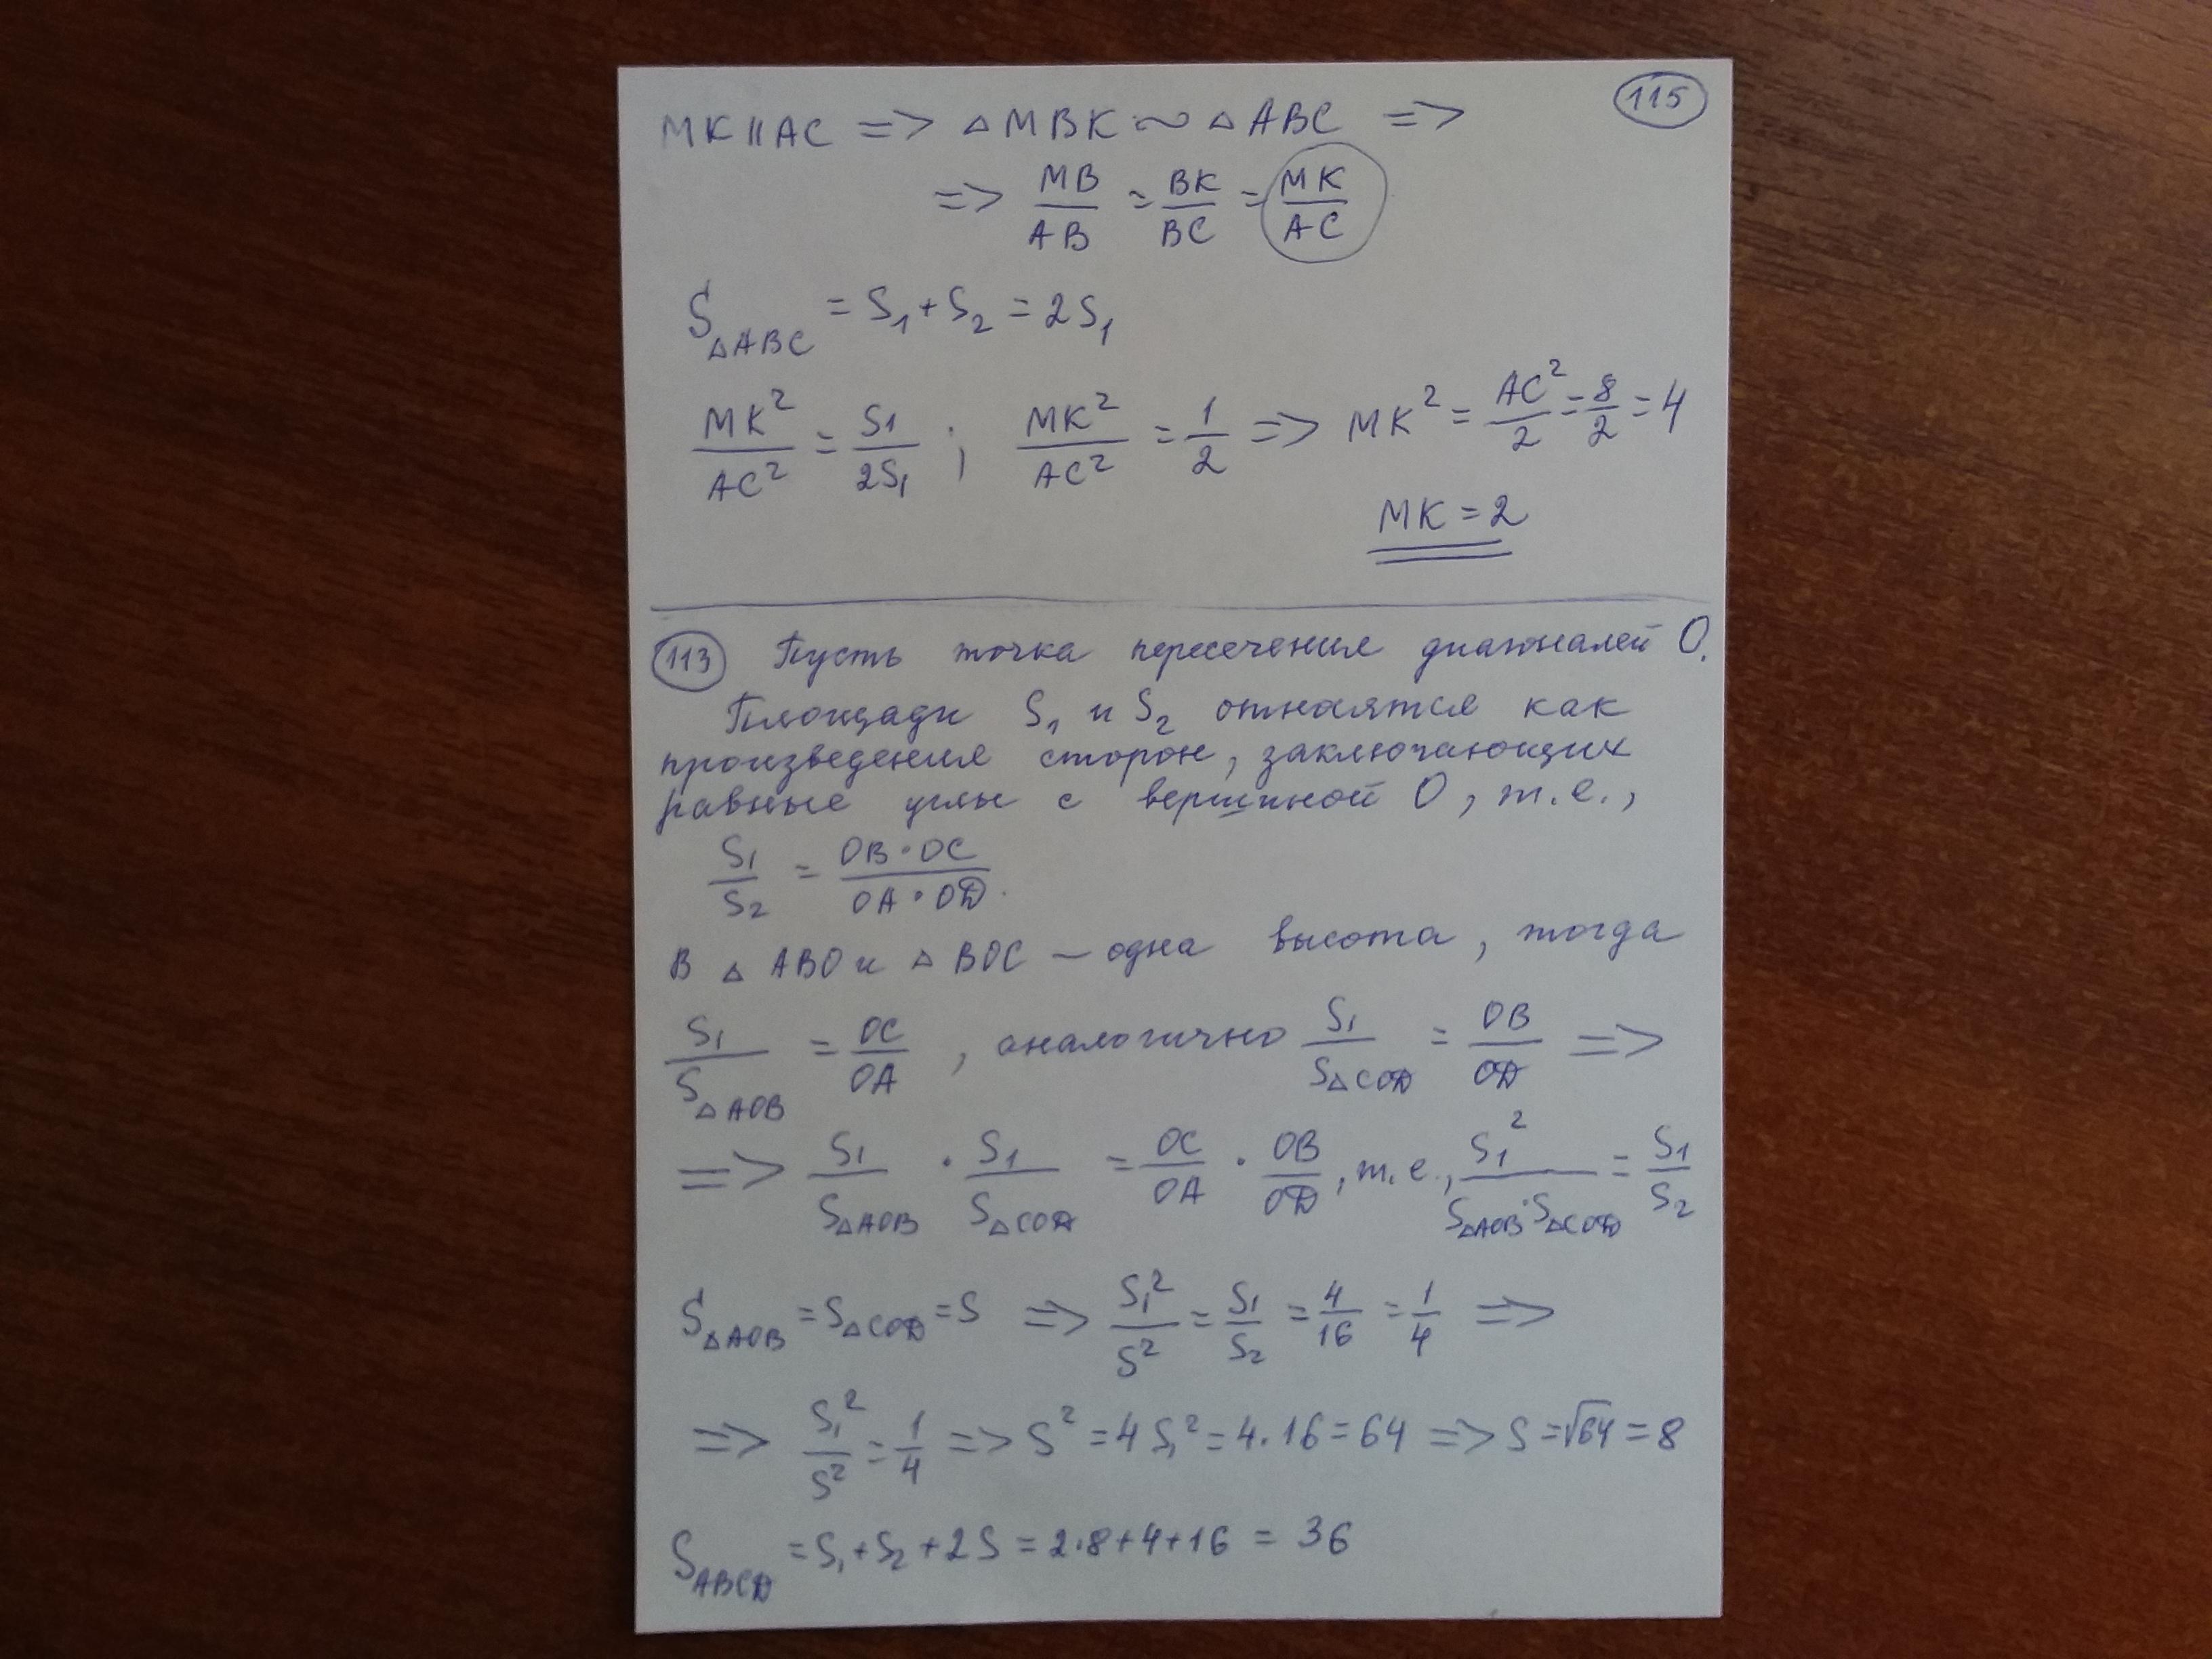 115
MK || AC => △MBK ~ △ABC =>
=> MB/AB = BK/BC = MK/AC
S△ABC = S₁ + S₂ = 2S₁
MK²/AC² = S₁/2S₁ ; MK²/AC² = 1/2 => MK² = AC²/2 = 8/2 = 4
MK = 2
113 Пусть точка пересечения диагоналей O.
Площади S₁ и S₂ относятся как
произведения сторон, заключающих
равные углы с вершиной O, т.е.,
S₁/S₂ = OB·OC/OA·OD.
В △ABO и △BOC – одна высота, тогда
S₁/S△AOB = OC/OA, аналогично S₁/S△COD = OB/OD =>
=> S₁/S△AOB · S₁/S△COD = OC/OA · OB/OD, т.е., S₁²/S△AOB·S△COD = S₁/S₂
S△AOB = S△COD = S => S₁²/S² = S₁/S₂ = 4/16 = 1/4 =>
=> S₁²/S² = 1/4 => S² = 4S₁² = 4·16 = 64 => S = √64 = 8
SABCD = S₁ + S₂ + 2S = 2·8 + 4 + 16 = 36